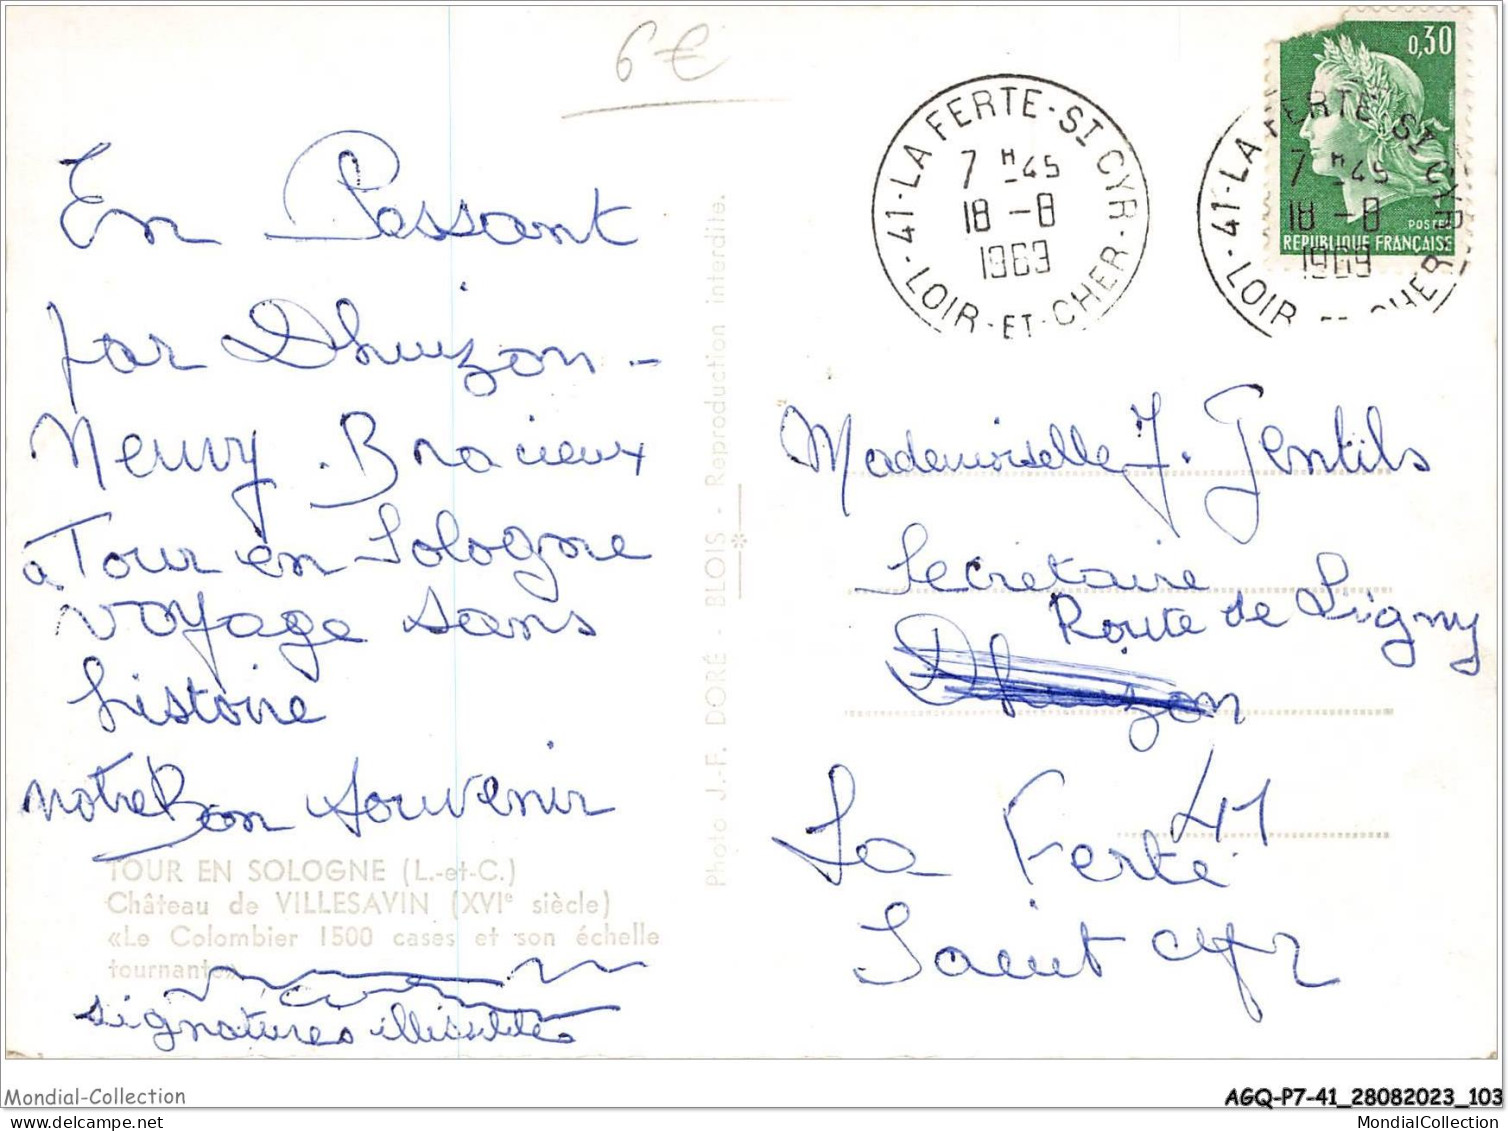 6 €
En Passant
par Dhuizon -
Neuvy. Bracieux
à Tour en Sologne
voyage sans
histoire
notre Bon souvenir
TOUR EN SOLOGNE (L.-et-C.)
Château de VILLESAVIN (XVIe siècle)
«Le Colombier 1500 cases et son échelle
tournante»
signatures illisibles
Photo J.-F. DORÉ - BLOIS - Reproduction interdite.
41 - LA FERTE-ST CYR - LOIR-ET-CHER
7 H 45
18 -8
1969
41 - LA FERTE ST CYR - LOIR ET CHER
7 H 45
18 -8
1969
0,30
POSTES
REPUBLIQUE FRANÇAISE
Mademoiselle J. Gentils
Secretaire
Route de Ligny
Dhuizon
41
La Ferté
Saint Cyr
Mondial-Collection
AGQ-P7-41_28082023_103
MondialCollection